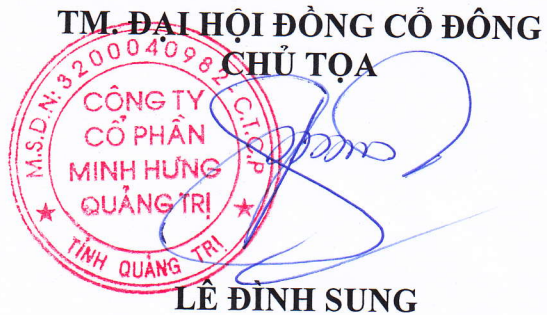 TM. ĐẠI HỘI ĐỒNG CỔ ĐÔNG
CHỦ TỌA
M.S.D.N: 3200040982 - C.T.C.P
CÔNG TY
CỔ PHẦN
MINH HƯNG
QUẢNG TRỊ
TỈNH QUẢNG TRỊ
LÊ ĐÌNH SUNG